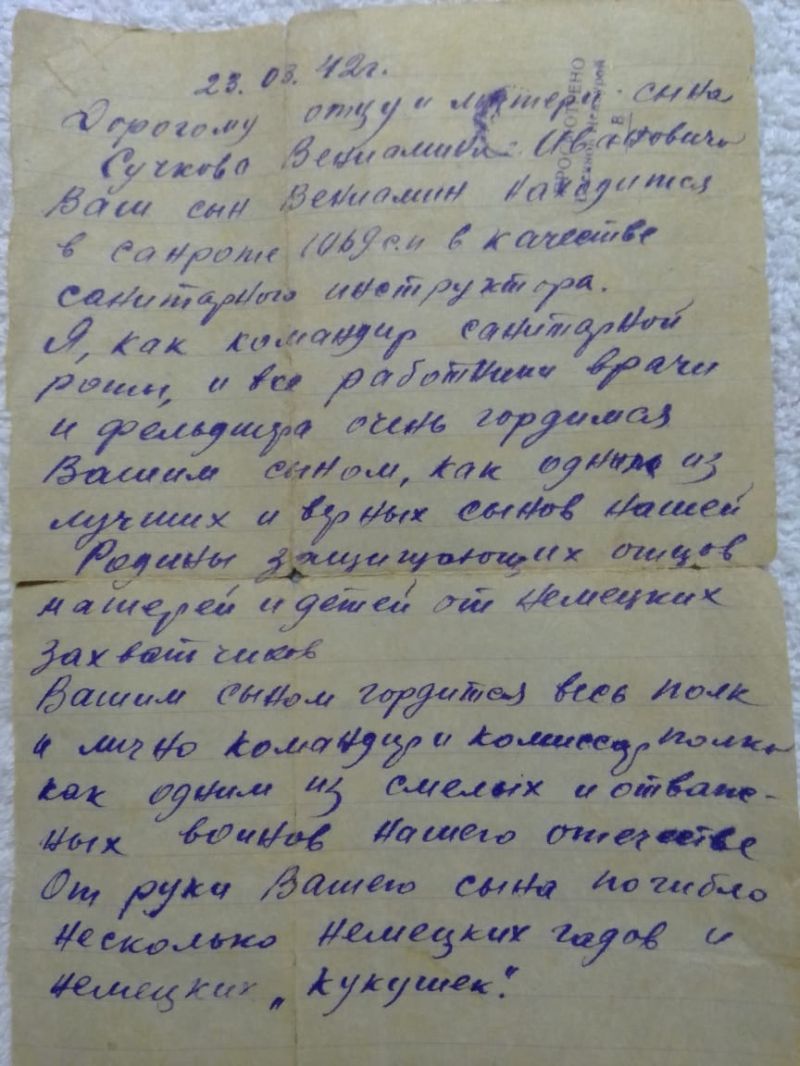 23.03.42г.
Дорогому отцу и матери сына
Сучкова Вениамина Ивановича
Ваш сын Вениамин находится
в санроте 1069 с.п в качестве
санитарного инструктора.
Я, как командир санитарной
роты, и все работники врачи
и фельдшера очень гордимся
Вашим сыном, как одним из
лучших и верных сынов нашей
Родины защищающих отцов
матерей и детей от немецких
захватчиков
Вашим сыном гордится весь полк
и лично командир и комиссар полка
как одним из смелых и отваж-
ных воинов нашего отечества
От руки Вашего сына погибло
несколько немецких гадов и
немецких „кукушек".
ПРОСМОТРЕНО
Военной Цензурой